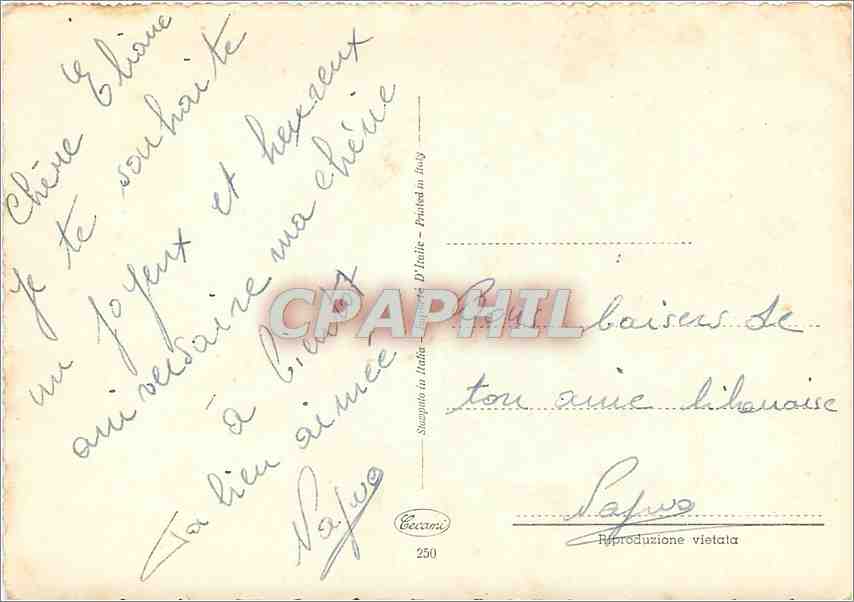 Chère Eliane
je te souhaite
un joyeux et heureux
aniversaire ma chérie
à bientôt
Ta bien aimée
Najwa
Stampato in Italia - Importé D'Italie - Printed in Italy
CPAPHIL
Bons baisers de
ton amie libanaise
Najwa
Cecami
250
Riproduzione vietata